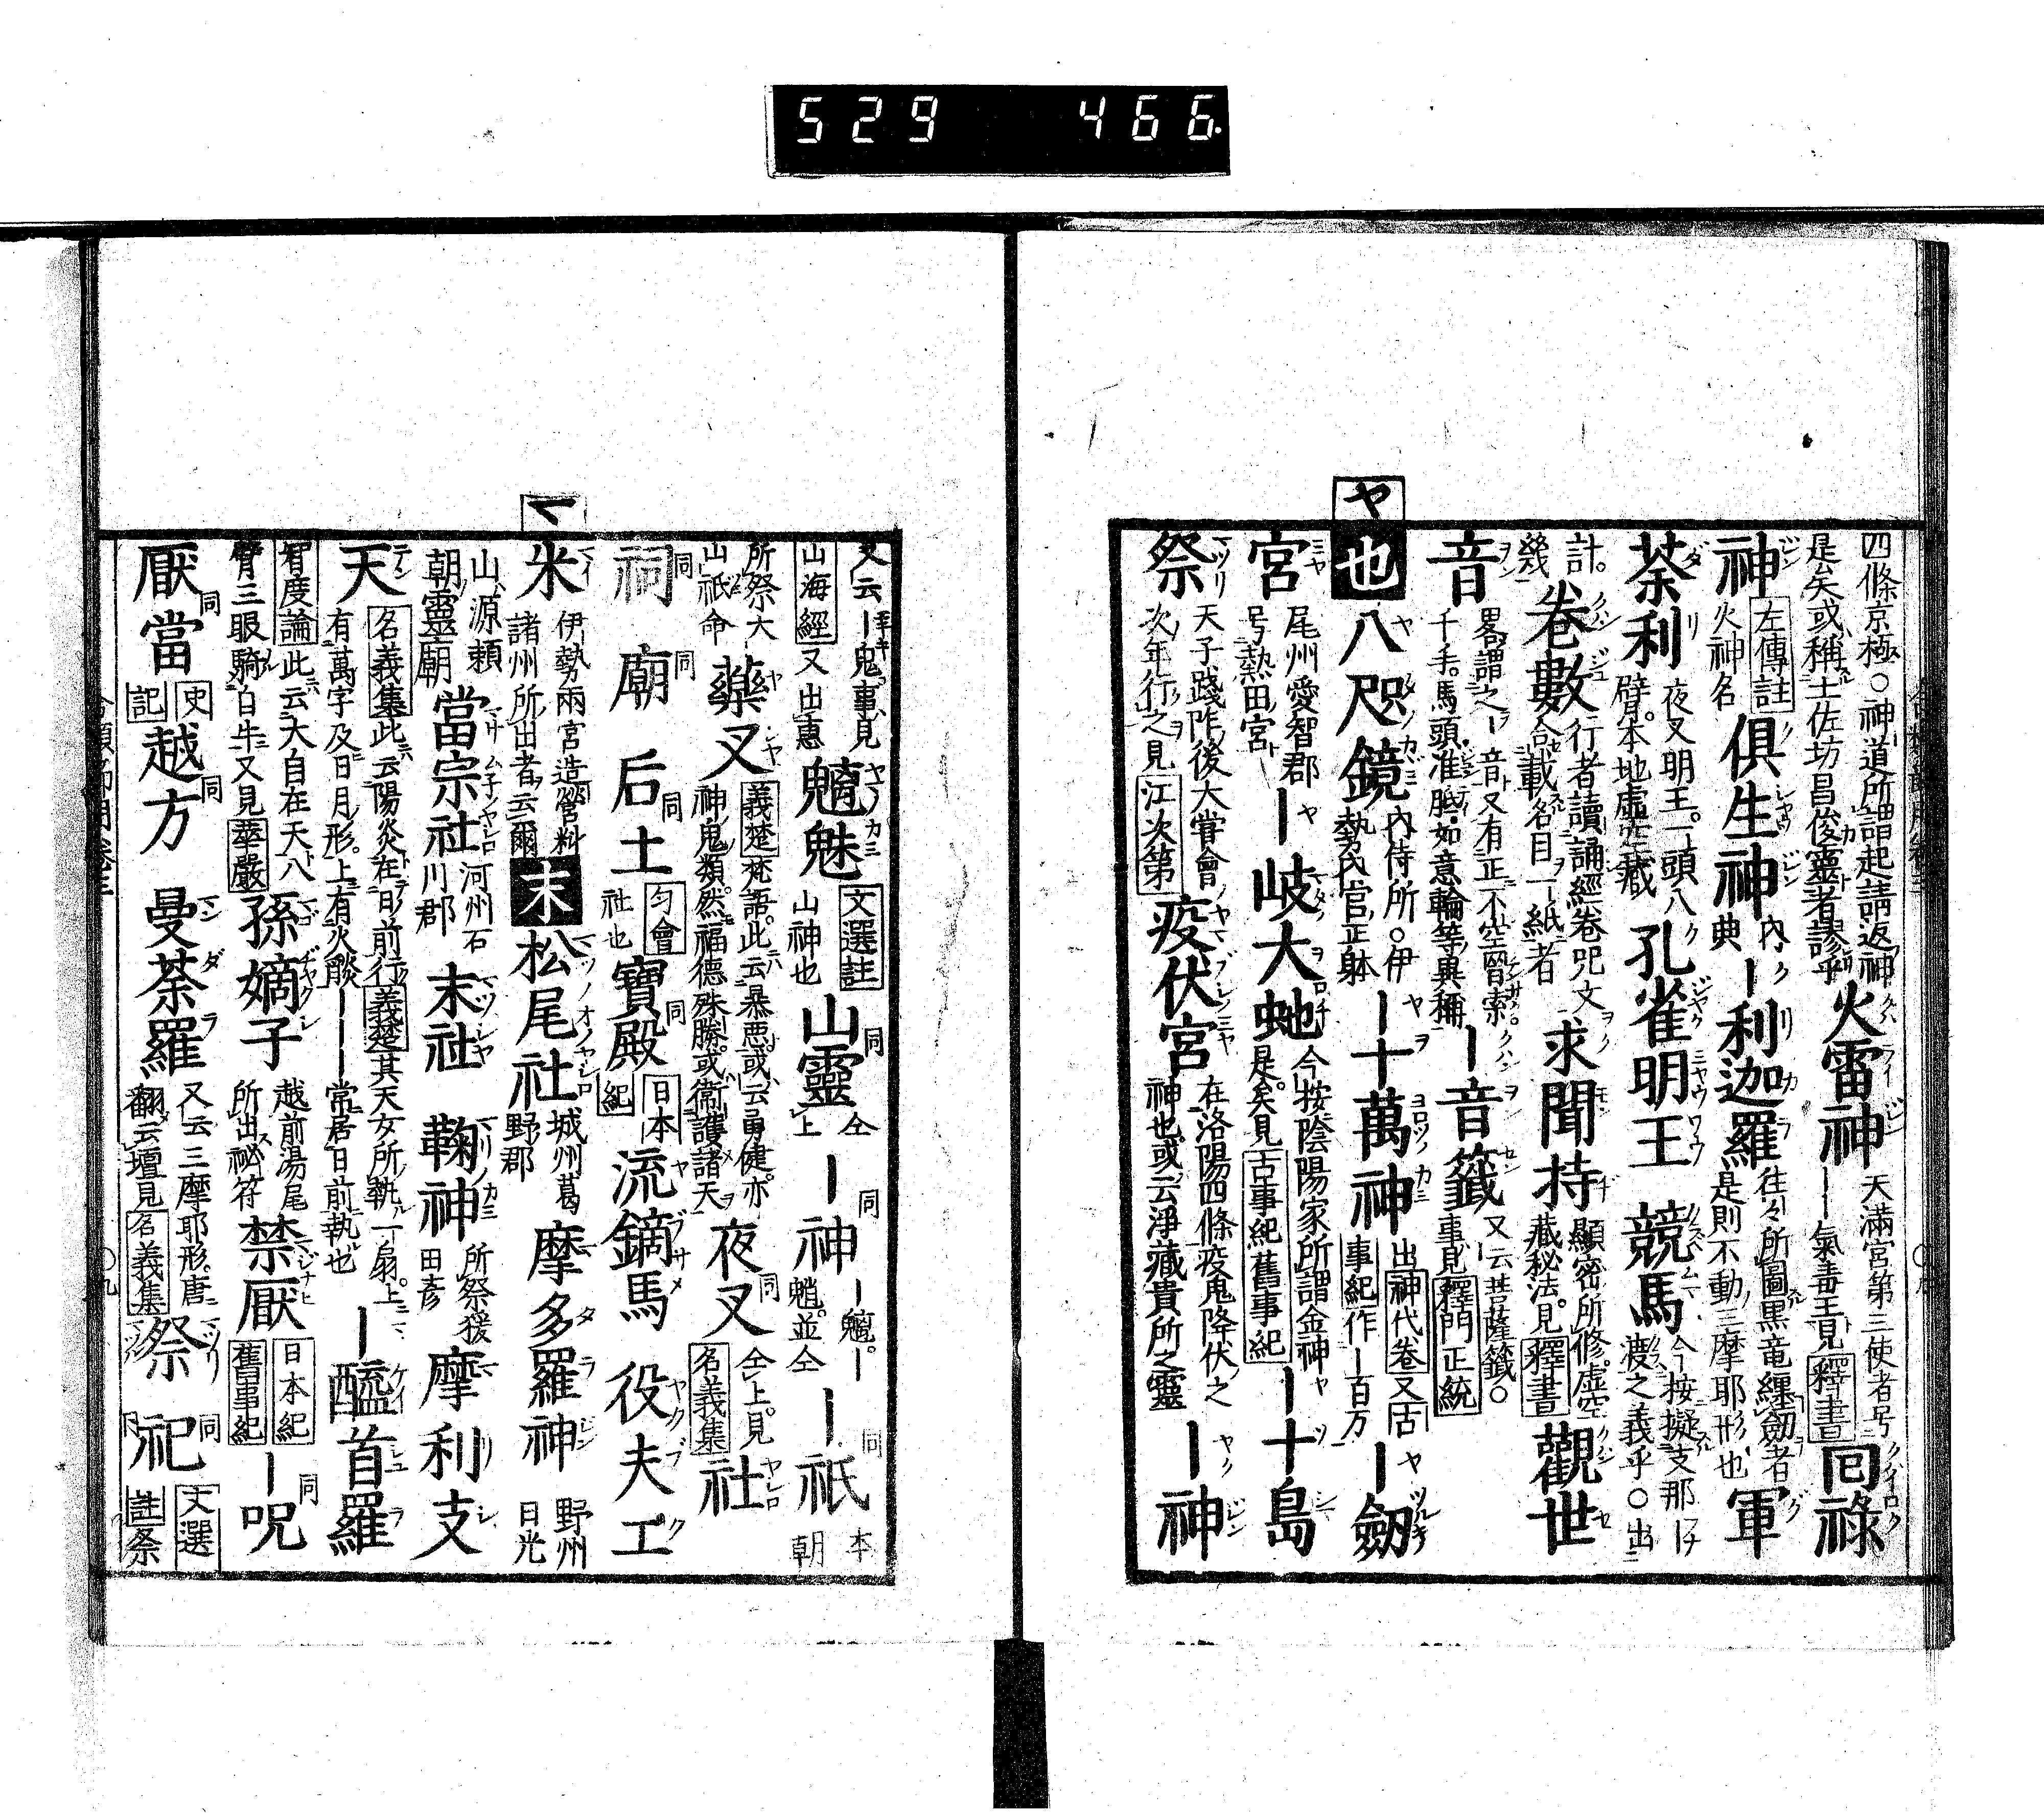 529 466
四條京極○神道所謂起請返神
是矣或稱土佐坊昌俊靈者謬乎
火雷神 天滿宮第三使者号
――氣毒王見釋書
回祿
神 左傳註
火神名
俱生神 內典
―利迦羅 往々所圖黒竜纏劔者
是則不動三摩耶形也
軍
荼利 夜叉明王一頭八
臂本地虛空藏
孔雀明王
競馬 今按擬支那―
渡之義乎○出
計
幾
卷數 行者讀誦經卷咒文
合載名目一紙者
求聞持 顯密所修虛空
藏秘法見釋書
觀世
音 畧謂之―音又有正不空羂索
千手馬頭准胝如意輪等異稱
―音籤 又云菩薩籤○
事見釋門正統
ヤ
也
八咫鏡 內侍所○伊
勢內宮正躰
―十萬神 出神代卷又古
事紀作―百万
―劔
宮 尾州愛智郡
号熱田宮
―岐大虵 今按陰陽家所謂金神
是矣見古事紀舊事紀
―十島
祭 天子踐阼後大甞會
次年行之見江次第
疫伏宮 在洛陽四條疫鬼降伏之
神也或云淨藏貴所之靈
―神
又云―鬼事見
山海經又出惠
魑魅 文選註
山神也
山靈 同 仝上
―神 同 ―魑
魈並仝
―祇 同 本朝
所祭大
山祇命
藥叉 義楚梵語此云暴惡或云勇健亦
神鬼類然福德殊勝或衞護諸天
夜叉 同 仝上見
名義集
社
祠 同
廟 同
后土 同 匀會
社也
寶殿 同 日本
紀
流鏑馬
役夫工
マ
米 伊勢兩宮造營料
諸州所出者云爾
末
松尾社 城州葛
野郡
摩多羅神 野州
日光
山源賴
朝靈廟
當宗社 河州石
川郡
末社
鞠神 所祭猨
田彦
摩利支
天 名義集此云陽炎在日前行義楚其天女所執一扇上
有萬字及日月形上有火熖―――常居日前執也
―醯首羅
智度論此云大自在天八
臂三眼騎白牛又見華嚴
孫嫡子 越前湯尾
所出祕符
禁厭 日本紀
舊事紀
―呪 同
厭 同
當 史
記
越方 同
曼荼羅 又云三摩耶形唐
翻云壇見名義集
祭
祀 同 文選
註祭